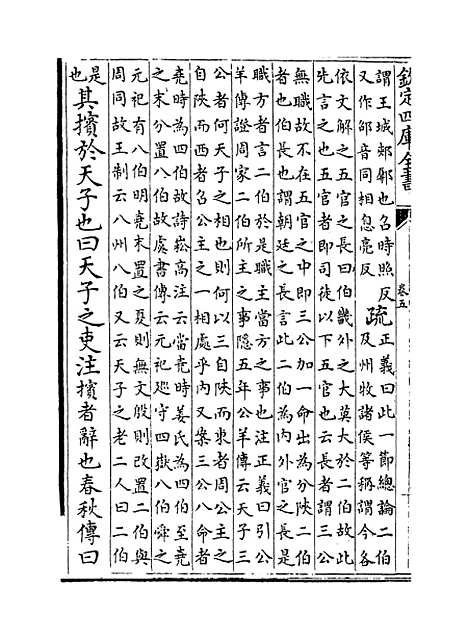 欽定四庫全書
卷五
謂王城郟鄏也召時照反
又作邵音同相息亮反
疏
正義曰此一節總論二伯
及州牧諸侯等稱謂今各
依文解之五官之長曰伯畿外之大莫大於二伯故此
先言之也五官者即司徒以下五官也云長者謂三公
無職故不在五官之中即三公加一命出為分陜二伯
者也伯長也謂朝廷之長言此二伯為內外官之長是
職方者言二伯於是職主當方之事也注正義曰引公
羊傳證周家二伯所主之事隱五年公羊傳云天子三
公者何天子之相也則何以三自陜而東者周公主之
自陜而西者召公主之一相處乎內又案三公八命者
堯時為四伯故詩崧高注云當堯時姜氏為四伯至堯
之末分置八伯故虞書傳云元祀廵守四嶽八伯舜之
元祀有八伯明堯末置之夏則無文殷則改置二伯與
周同故王制云八州八伯又云天子之老二人曰二伯
是
也
其擯於天子也曰天子之吏注擯者辭也春秋傳曰